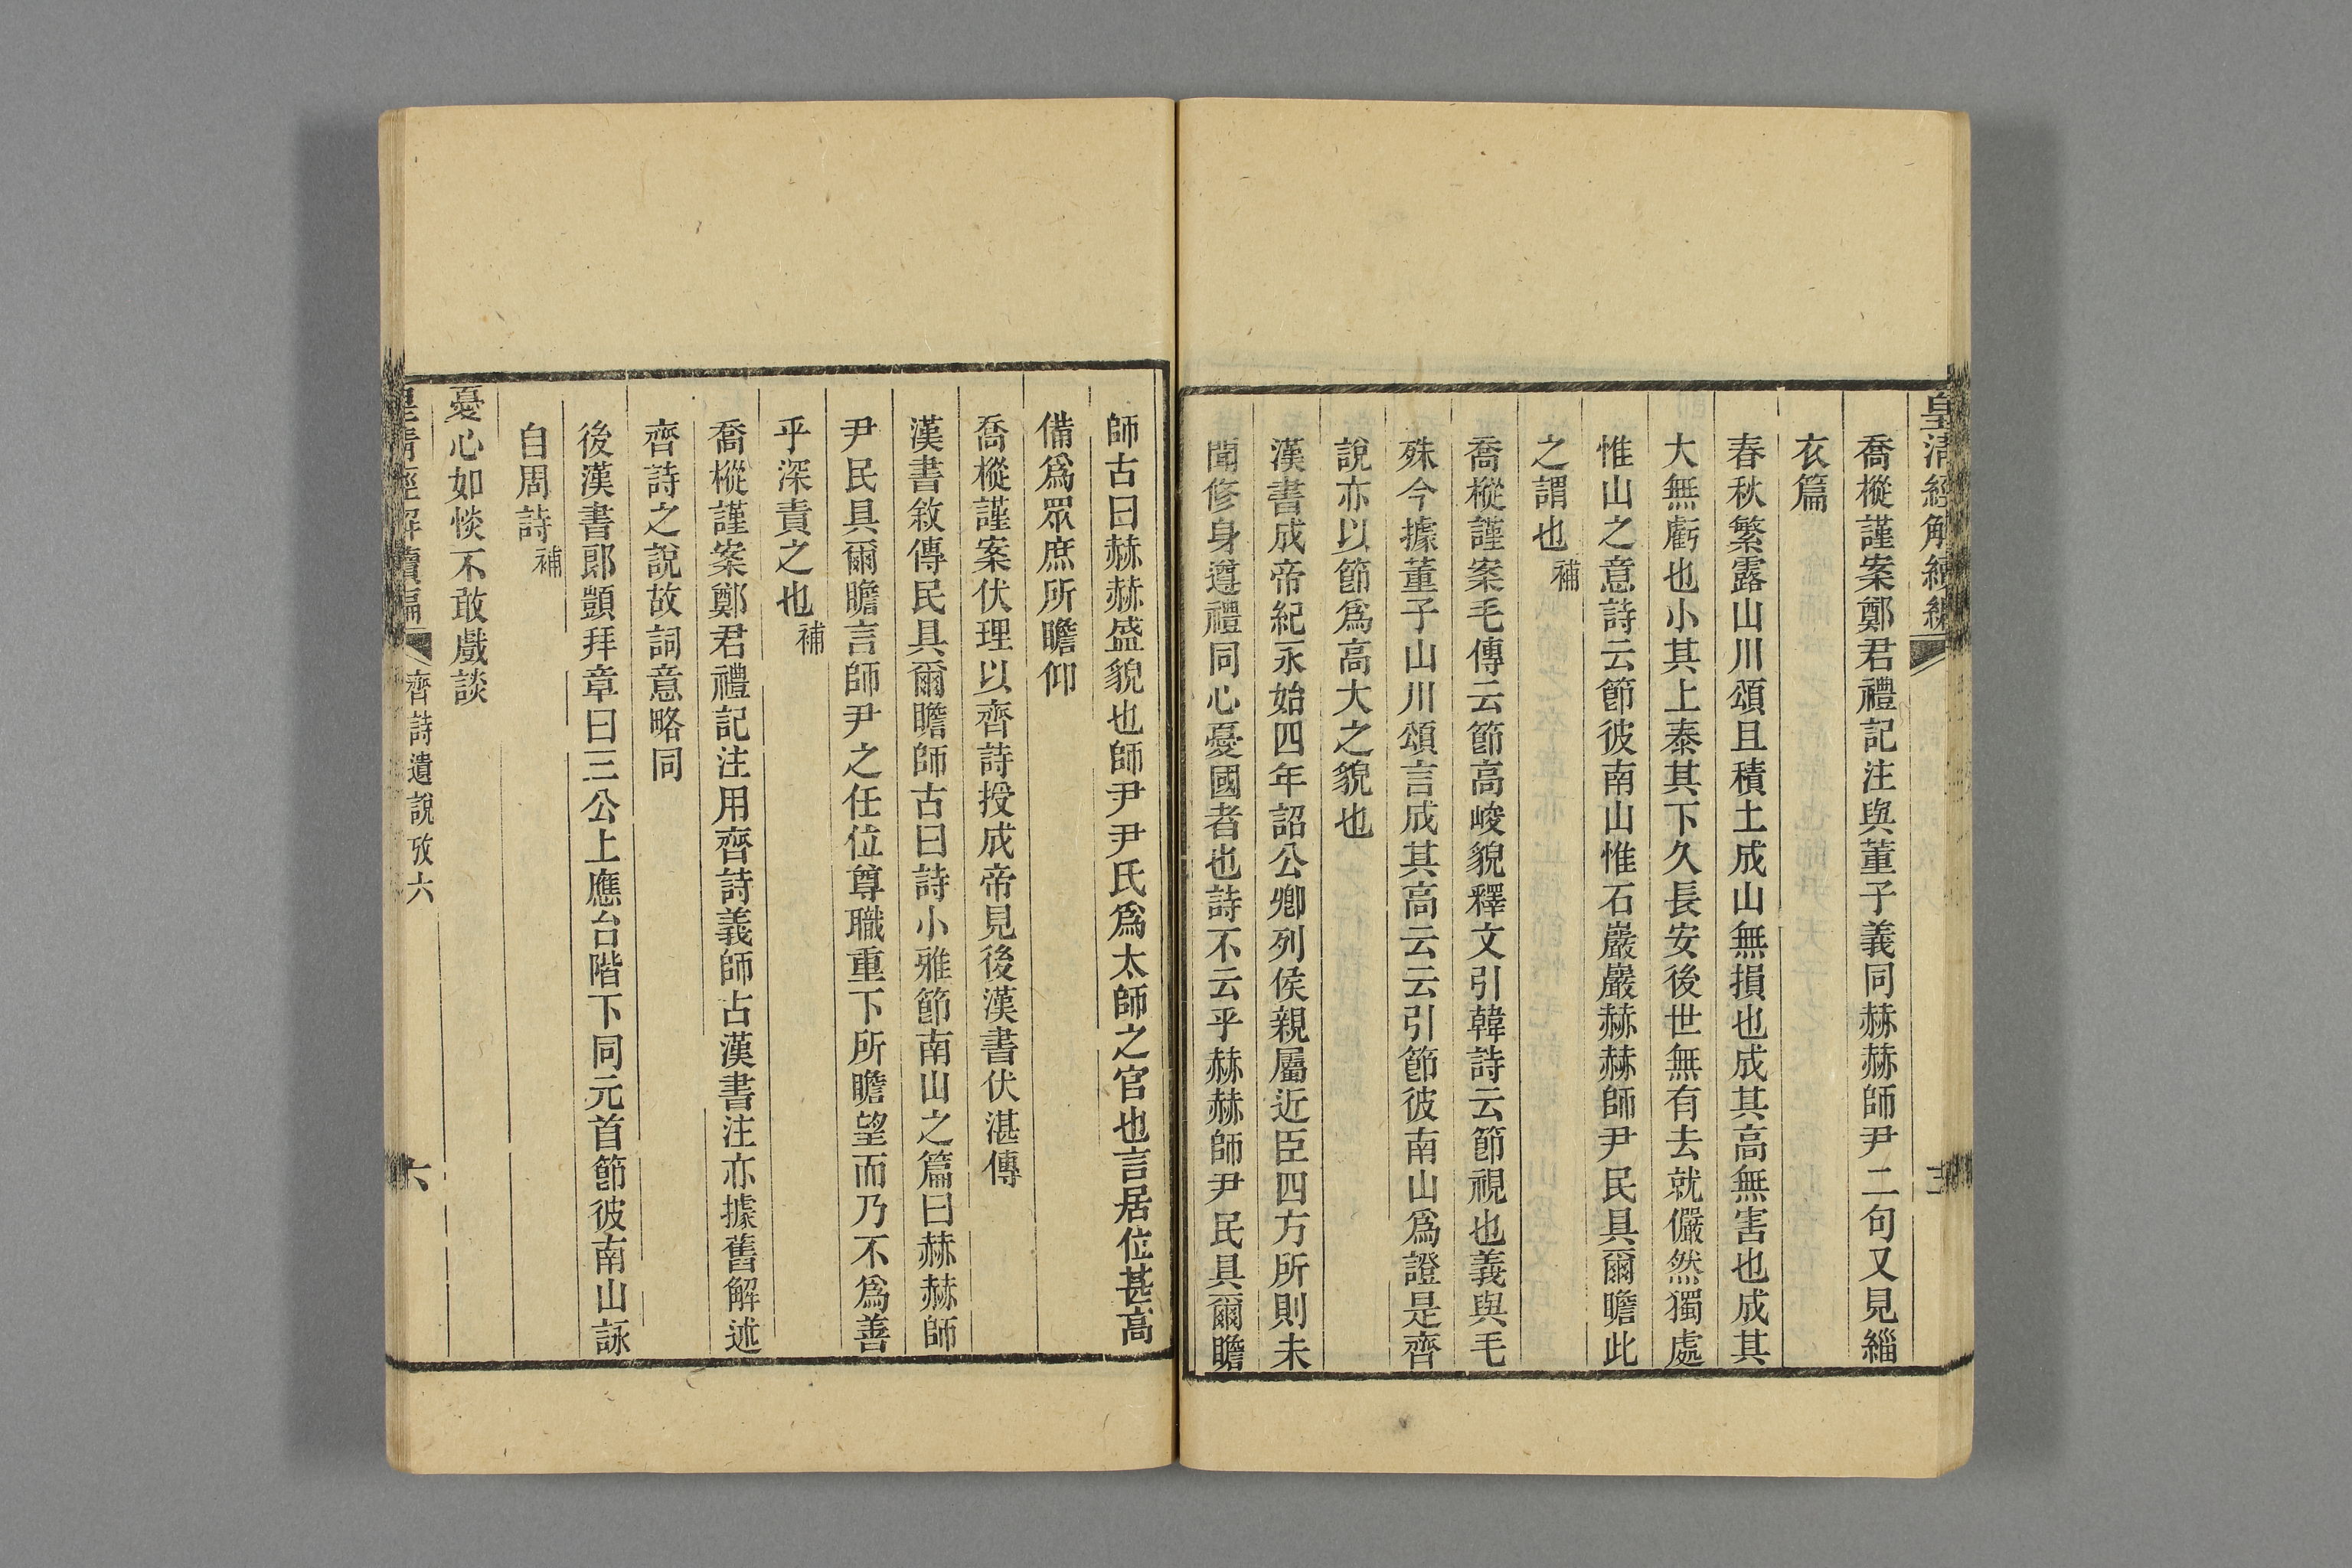 皇清經解續編
喬樅謹案鄭君禮記注與董子義同赫赫師尹二句又見緇
衣篇
春秋繁露山川頌且積土成山無損也成其高無害也成其
大無虧也小其上泰其下久長安後世無有去就儼然獨處
惟山之意詩云節彼南山惟石巖巖赫赫師尹民具爾瞻此
之謂也補
喬樅謹案毛傳云節高峻貌釋文引韓詩云節視也義與毛
殊今據董子山川頌言成其高云云引節彼南山為證是齊
說亦以節爲高大之貌也
漢書成帝紀永始四年詔公卿列侯親屬近臣四方所則未
聞修身遵禮同心憂國者也詩不云乎赫赫師尹民具爾瞻
師古曰赫赫盛貌也師尹尹氏爲太師之官也言居位甚高
備爲眾庶所瞻仰
喬樅謹案伏理以齊詩授成帝見後漢書伏湛傳
漢書敘傳民具爾瞻師古曰詩小雅節南山之篇曰赫赫師
尹民具爾瞻言師尹之任位尊職重下所瞻望而乃不爲善
乎深責之也補
喬樅謹案鄭君禮記注用齊詩義師古漢書注亦據舊解述
齊詩之說故詞意略同
後漢書郎顗拜章曰三公上應台階下同元首節彼南山詠
自周詩補
憂心如惔不敢戲談
皇清經解續編 齊詩遺說攷六 六